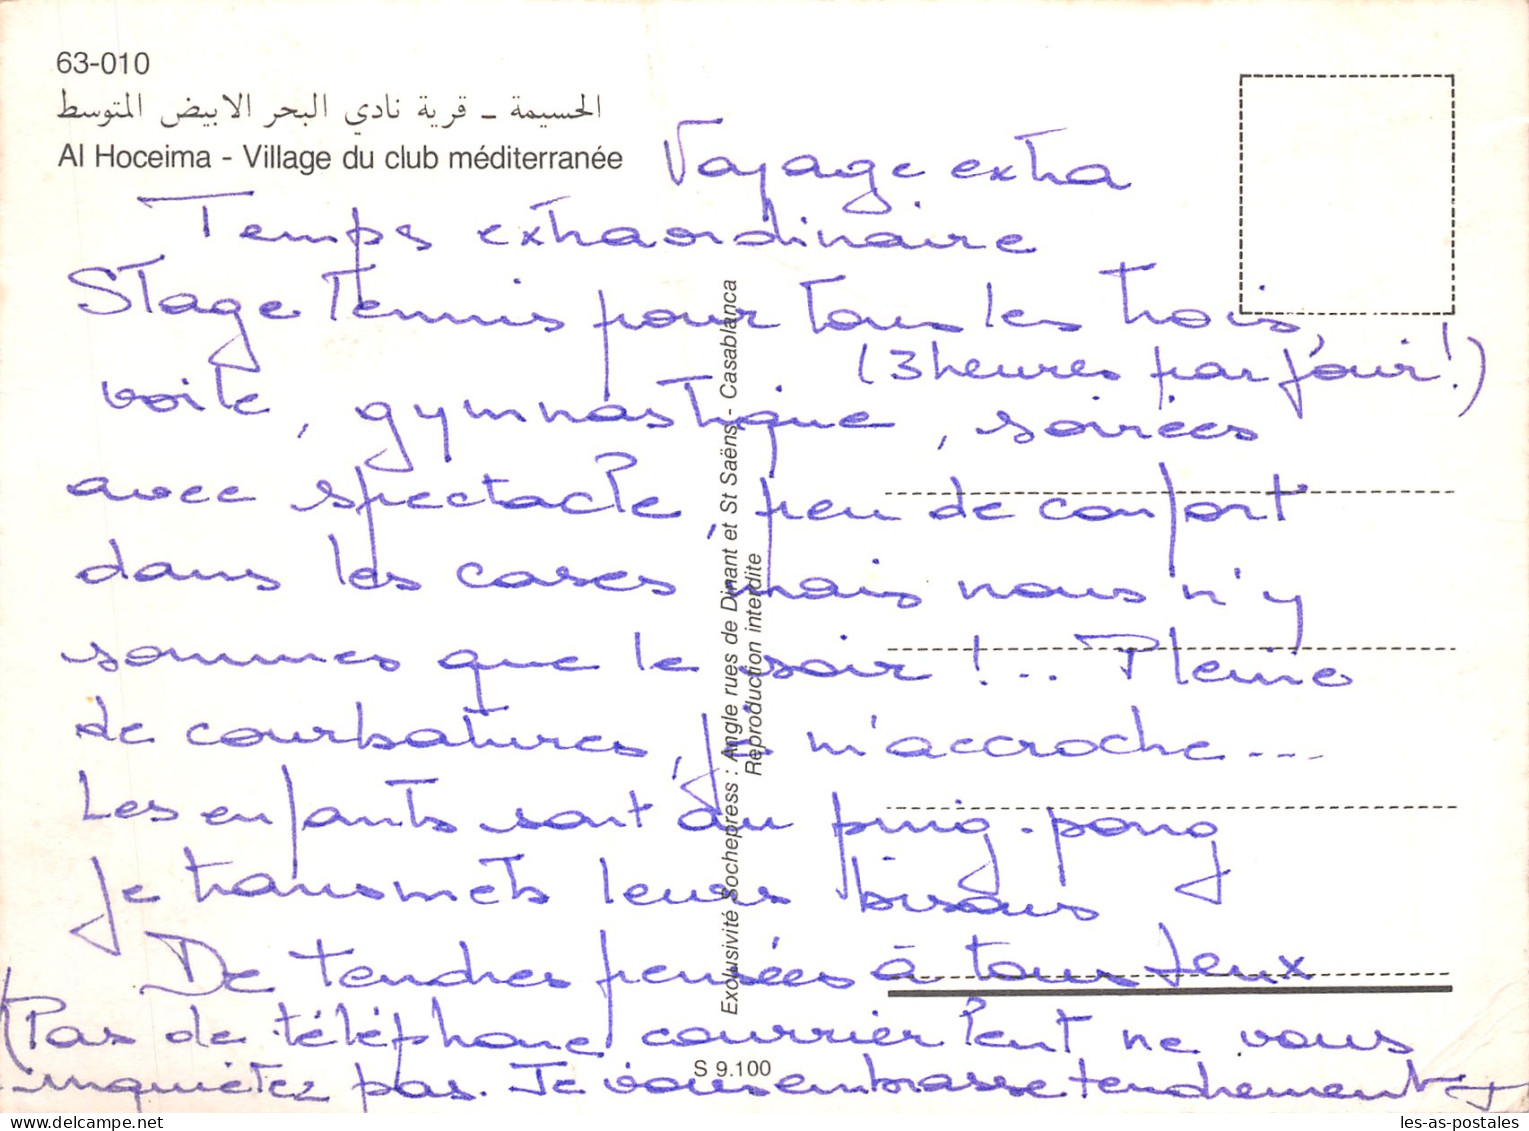 63-010
الحسيمة - قرية نادي البحر الابيض المتوسط
Al Hoceima - Village du club méditerranée
Voyage extra
Temps extraordinaire
Stage Tennis pour tous les trois,
(3 heures par jour!)
voile, gymnastique, soirées
avec spectacle, peu de confort
dans les cases mais nous n'y
sommes que le soir !... Pleine
de courbatures, je m'accroche...
Les enfants sont au ping-pong
Je transmets leurs bisous
De tendres pensées à tous deux
(Pas de téléphone, courrier lent ne vous
inquiétez pas. Je vous embrasse tendrement
Exclusivité Sochepress : Angle rues de Dinant et St Saëns - Casablanca
Reproduction interdite
S 9.100
les-as-postales